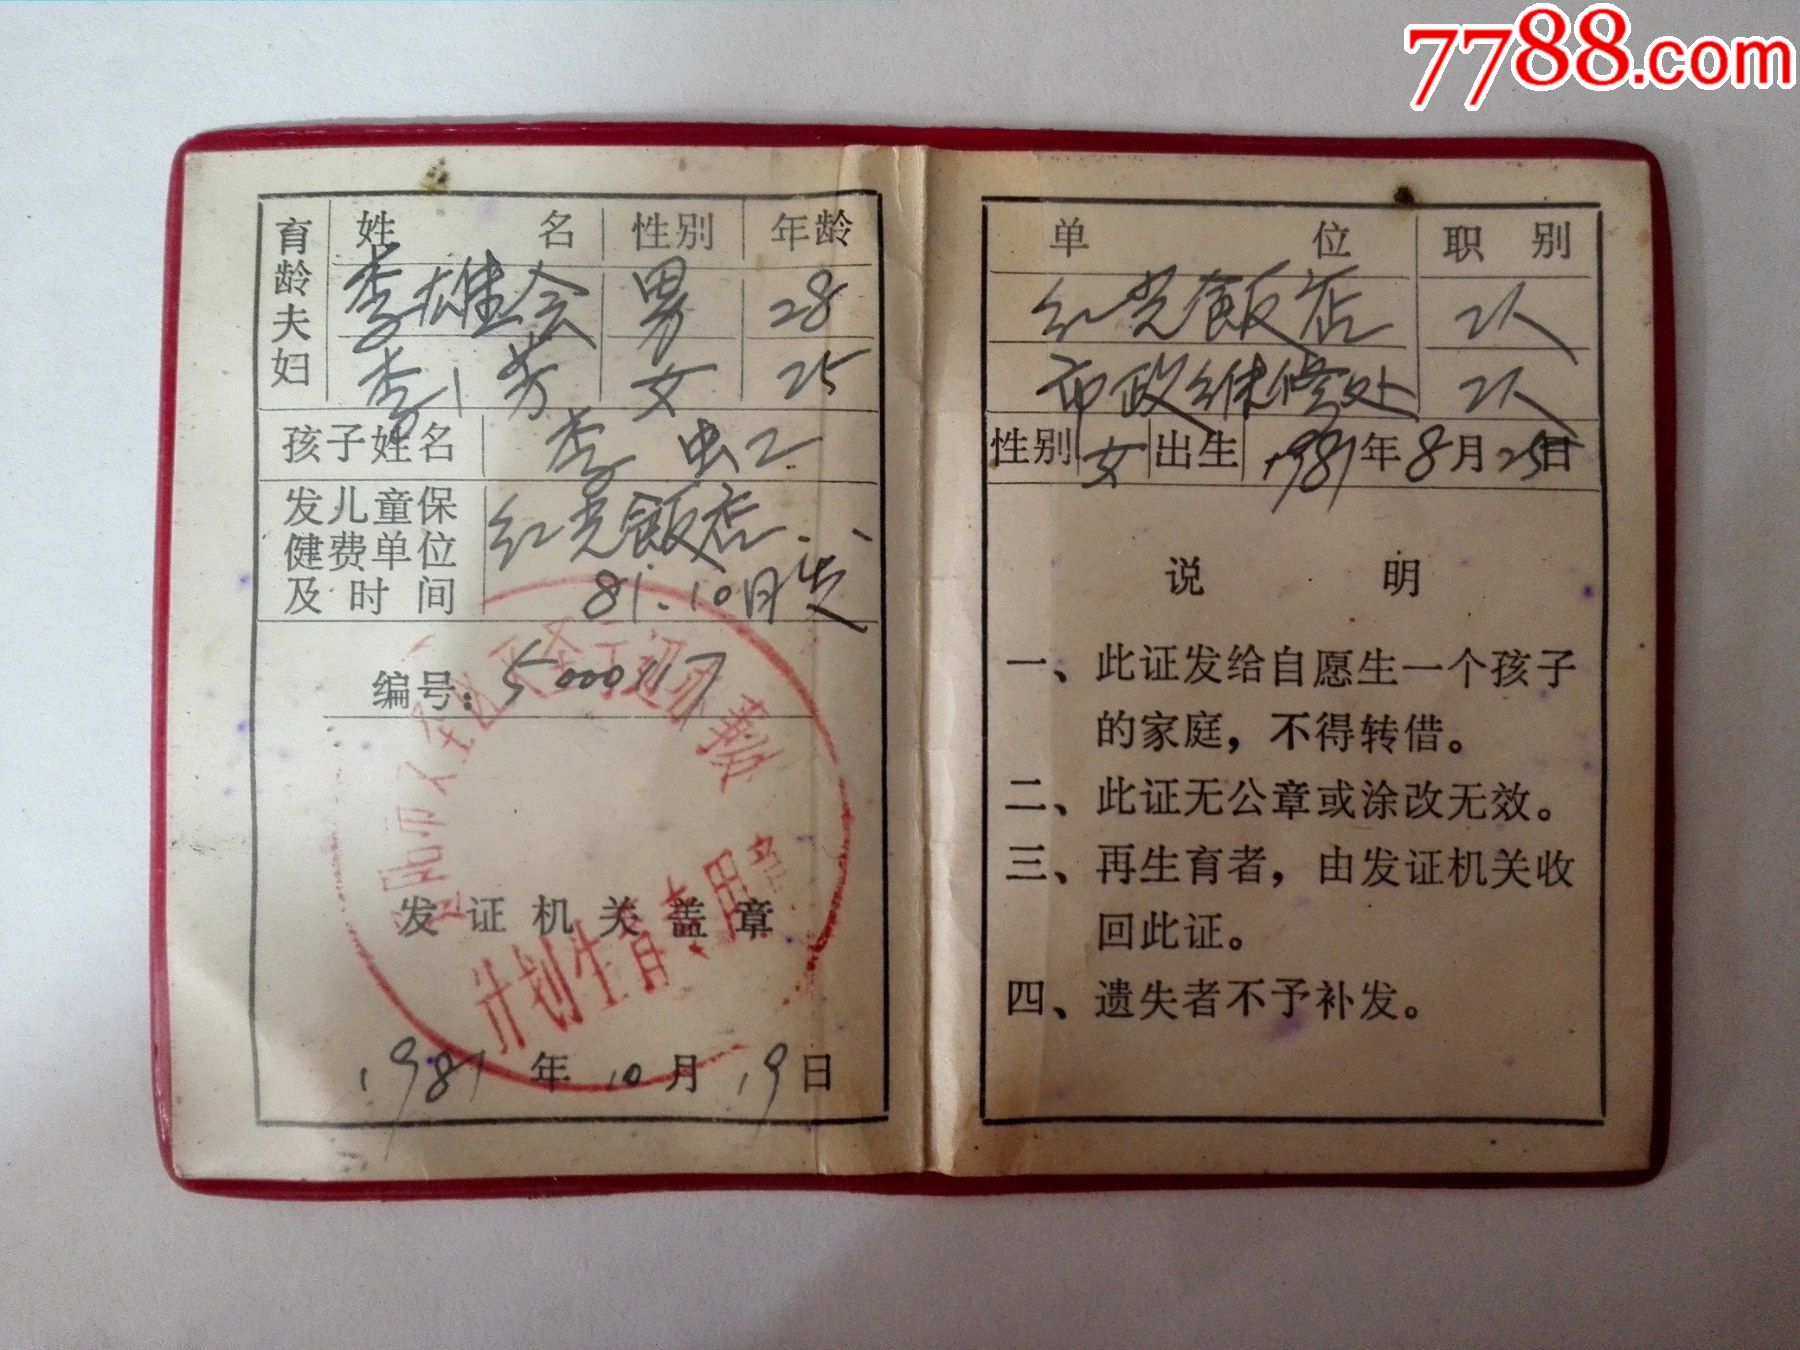 7788.com
育龄夫妇
姓名 性别 年龄
李雄会 男 28
李芳 女 25
孩子姓名 李虹
发儿童保健费单位及时间
红光飯店
81.10月发
编号:5000117
计划生育专用章
发证机关盖章
1981年10月19日
单位 职别
红光飯店 工人
市政维修处 工人
性别 女 出生 1981年8月25日
说明
一、此证发给自愿生一个孩子
的家庭，不得转借。
二、此证无公章或涂改无效。
三、再生育者，由发证机关收
回此证。
四、遗失者不予补发。